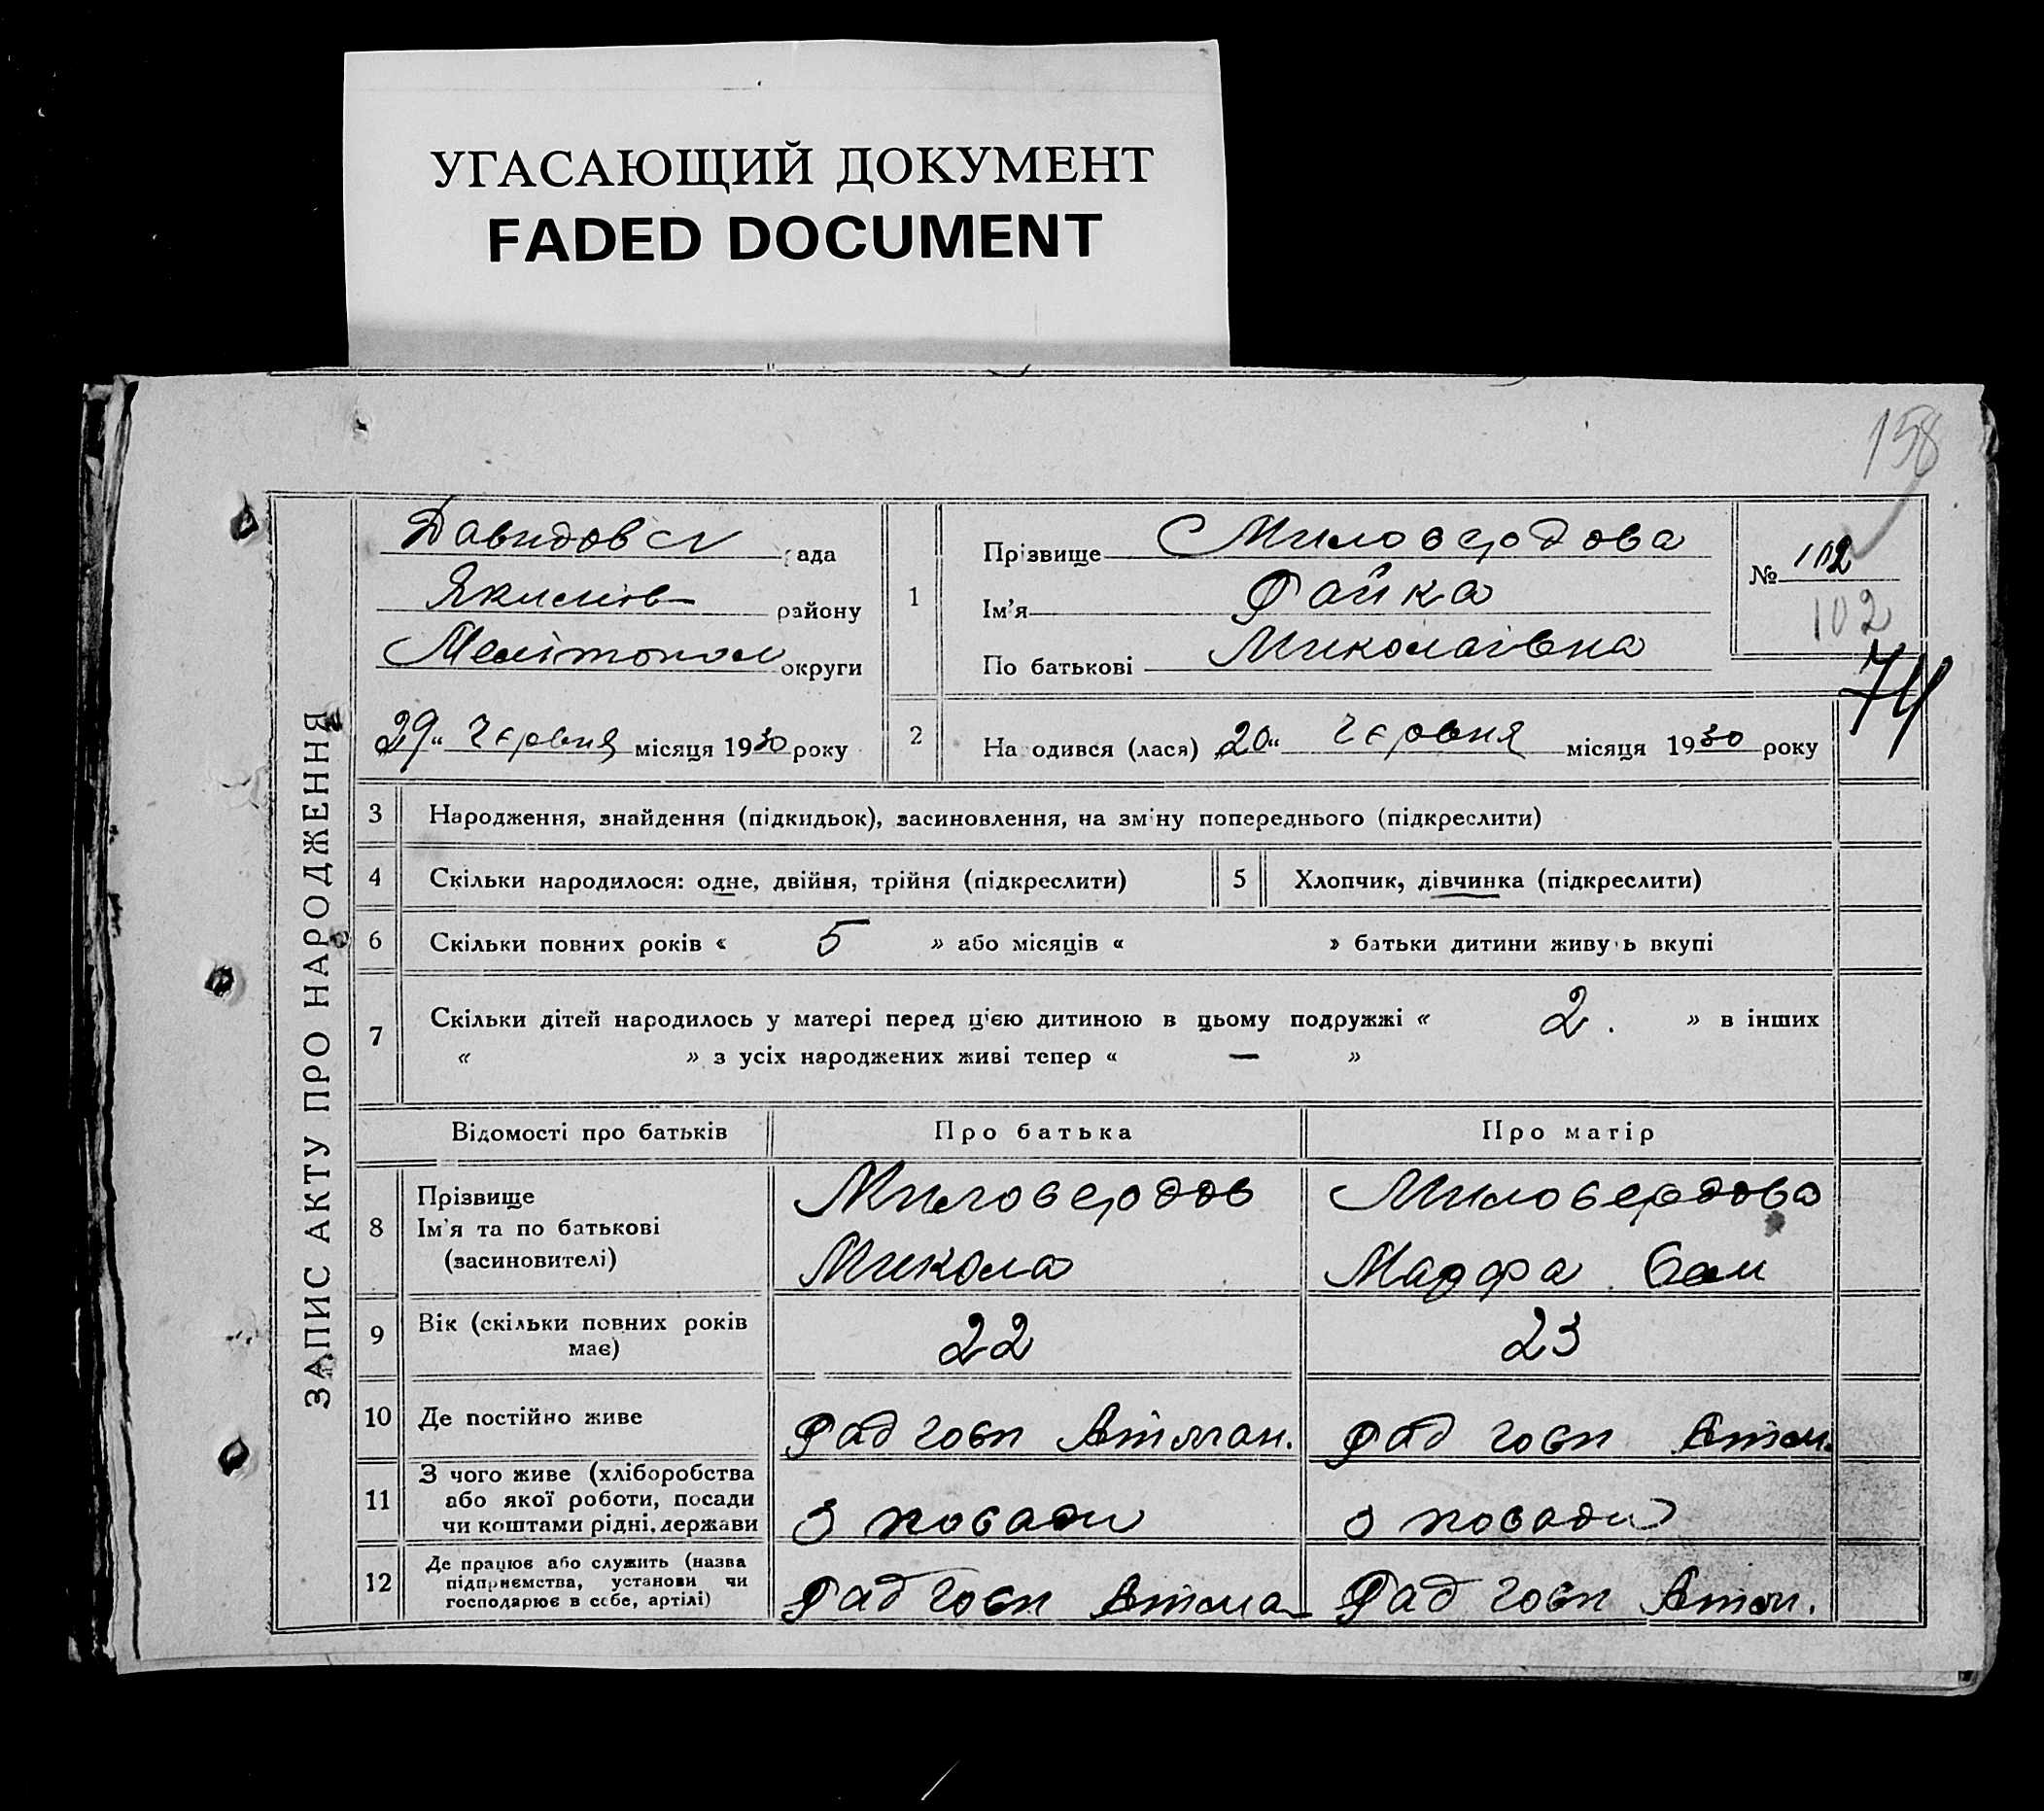 УГАСАЮЩИЙ ДОКУМЕНТ
FADED DOCUMENT
158
ЗАПИС АКТУ ПРО НАРОДЖЕННЯ
Давидовс рада
Якимів району
Мелітопол округи
29 " червня місяця 1930 року
1
Прізвище Милосердова
Ім'я Райка
По батькові Миколаївна
№ 102
102
74
2 Народився (лася) 20 " червня місяця 1930 року
3 Народження, знайдення (підкидьок), засиновлення, на зміну попереднього (підкреслити)
4 Скільки народилося: одне, двійня, трійня (підкреслити) 5 Хлопчик, дівчинка (підкреслити)
6 Скільки повних років « 5 » або місяців « » батьки дитини живуть вкупі
7 Скільки дітей народилось у матері перед цією дитиною в цьому подружжі « 2. » в інших
« » з усіх народжених живі тепер « — »
Відомості про батьків Про батька Про матір
8 Прізвище
Ім'я та по батькові
(засиновителі)
Милосердов
Микола
Милосердова
Марфа Сам
9 Вік (скільки повних років
має)
22
23
10 Де постійно живе Радгосп Атман. Радгосп Атм.
11 З чого живе (хліборобства
або якої роботи, посади
чи коштами рідні, держави
з посади
з посади
12 Де працює або служить (назва
підприємства, установи чи
господарює в себе, артілі)
Радгосп Атма
Радгосп Атм.